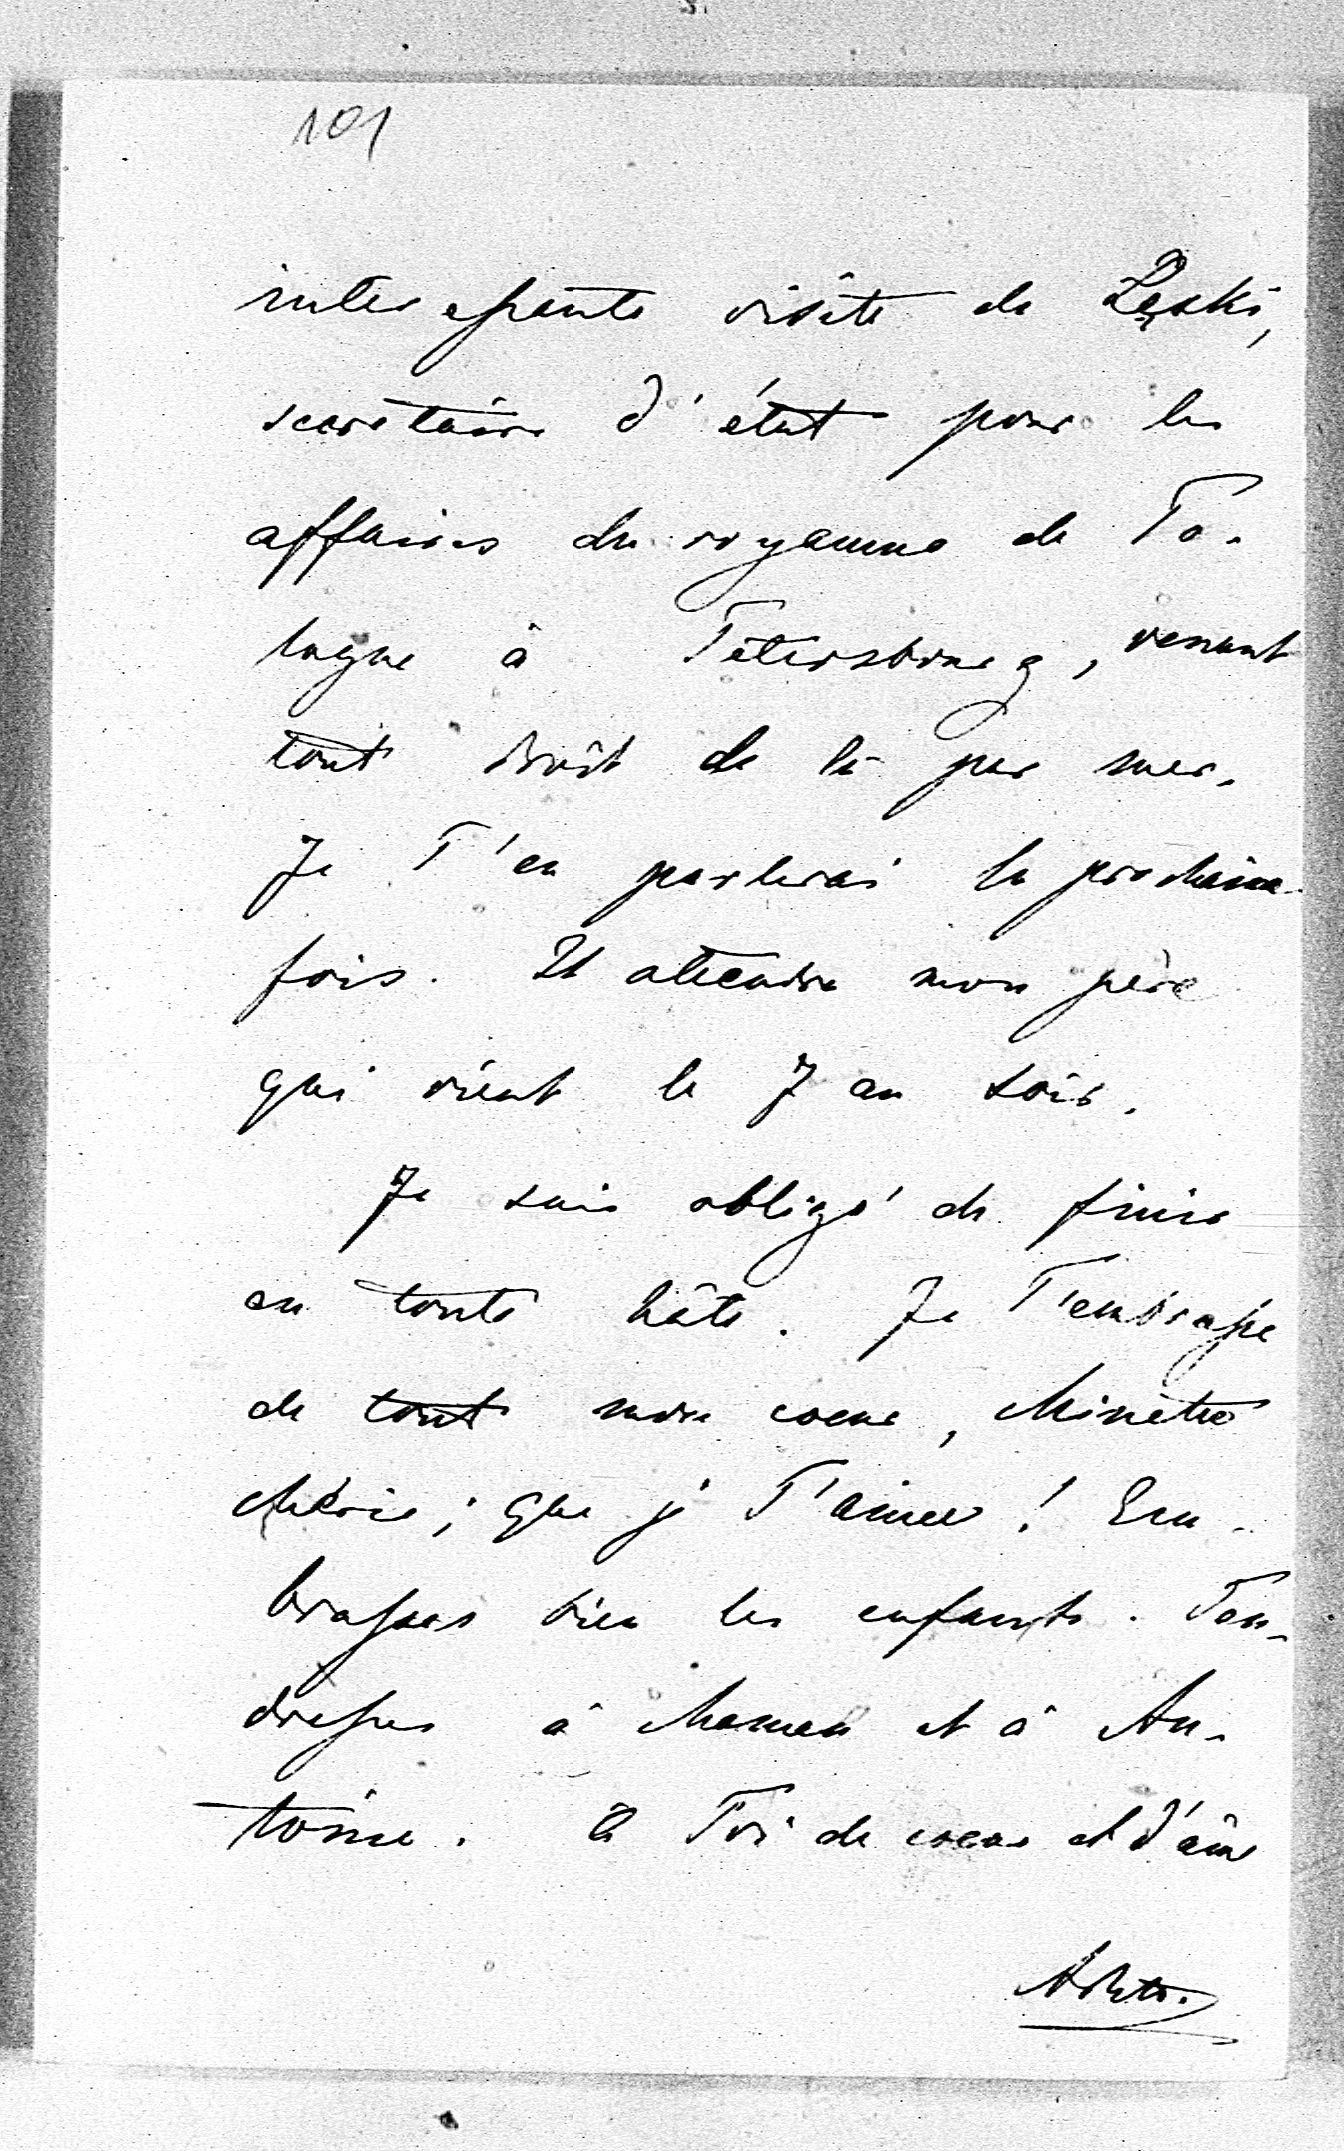 101
interessante visite de Łęski,
secrétaire d'état pour les
affaires du royaume de Po-
logne à Pétersbourg, venant
tout droit de là par mer.
Je T'en parlerai la prochaine
fois. Il attendra mon père
qui vient le 7 au soir.
Je suis obligé de finir
en toute hâte. Je T'embrasse
de tout mon coeur, Minette
chérie; que je T'aime! Em-
brasses bien les enfants. Ten-
dresses à Maman et à An-
toine. à Toi de coeur et d'âme